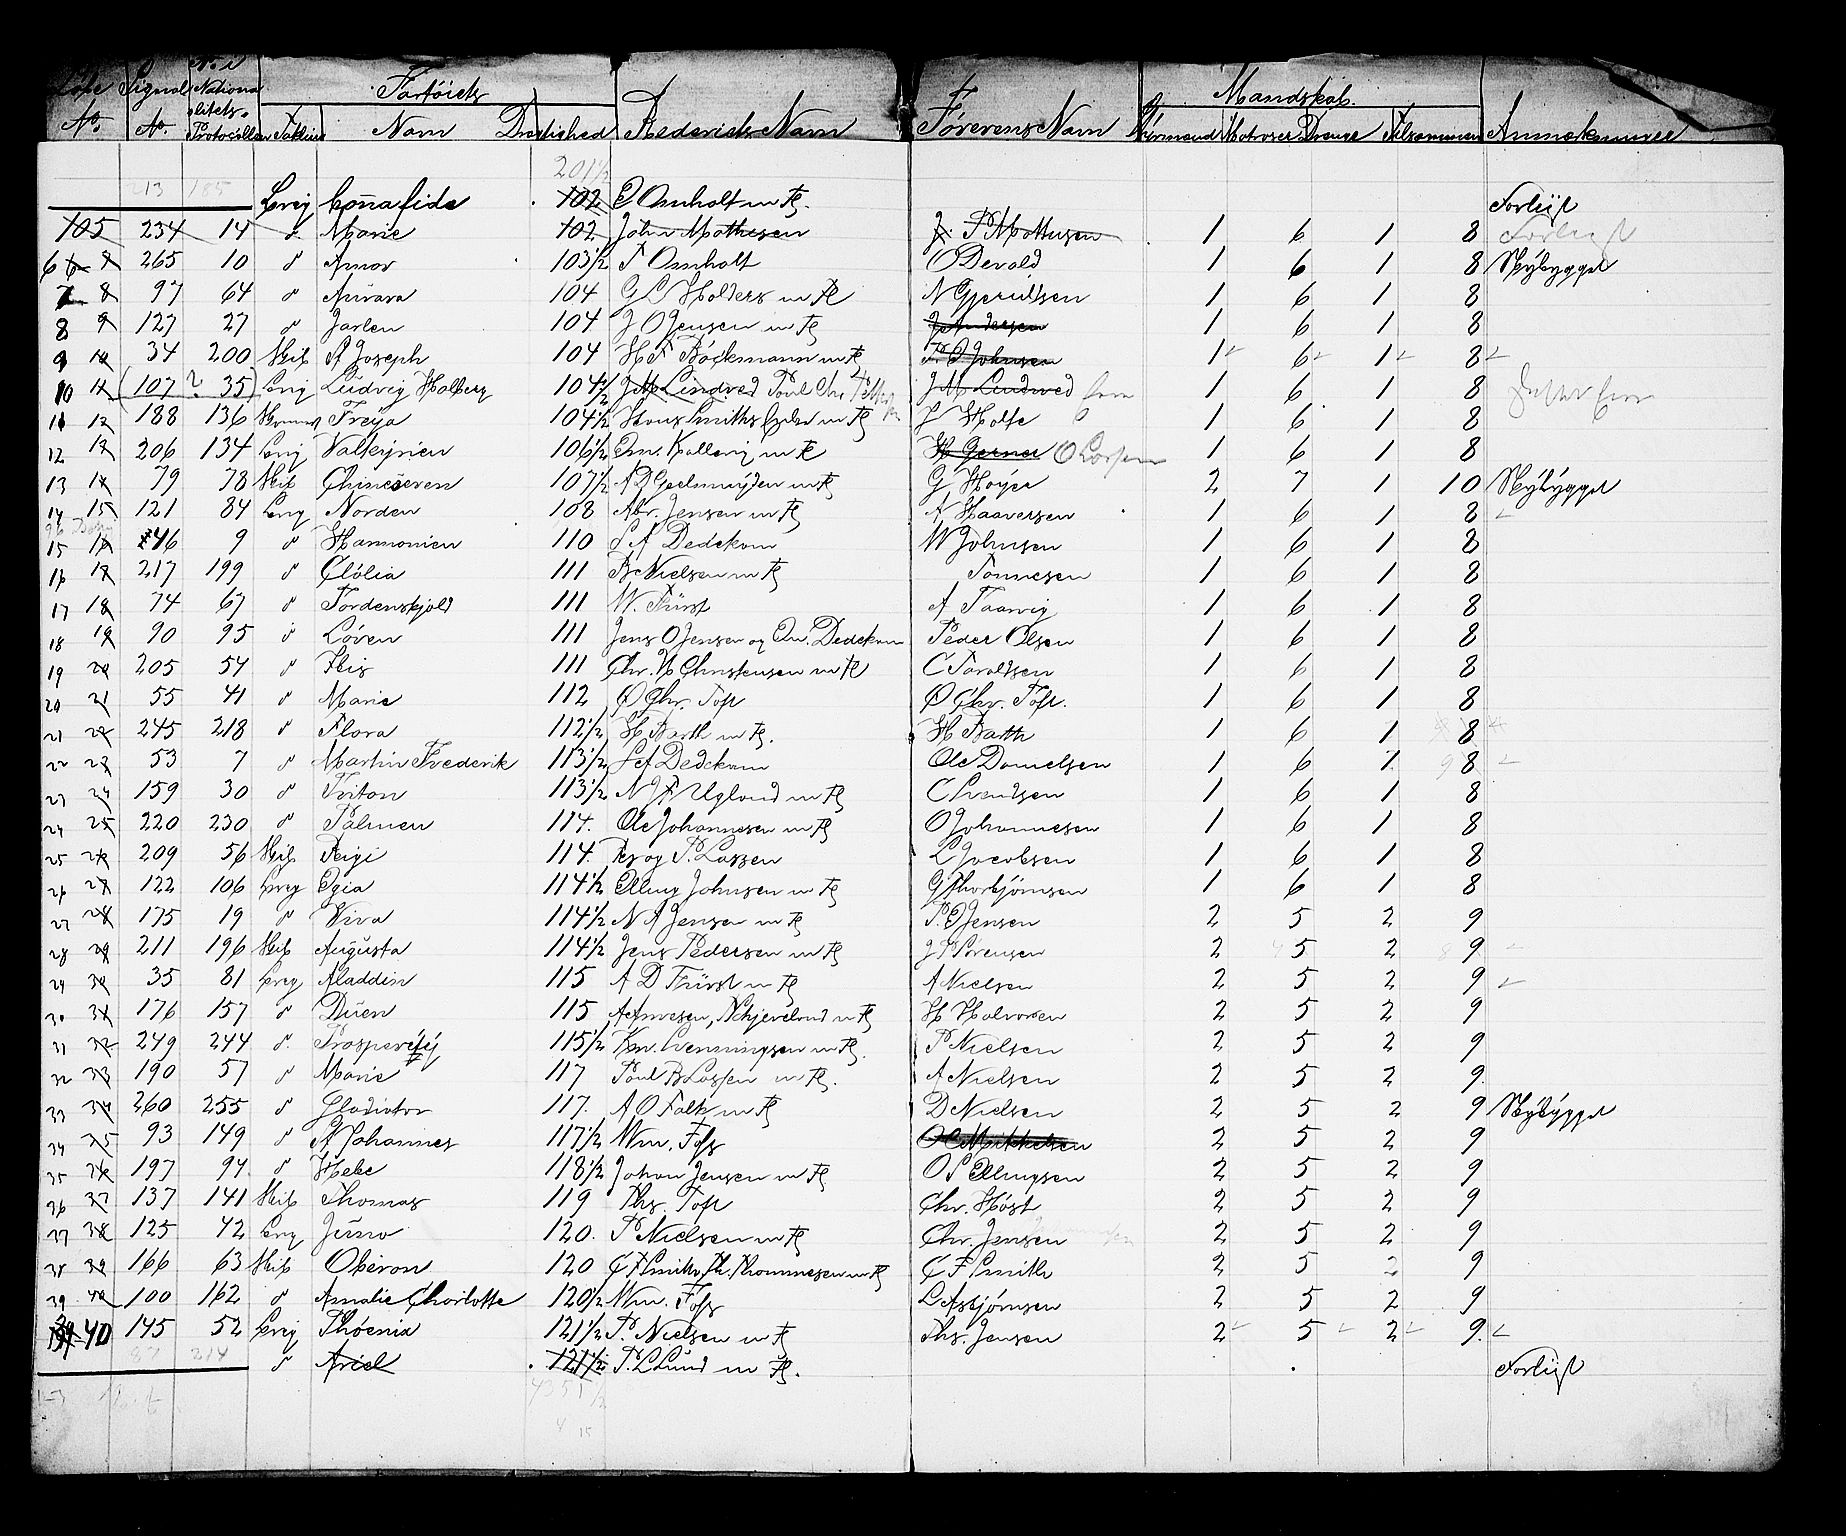 Løbe Signal No. i Nationalitets- Fartøiets Rederiets Navn Førerens Navn Mandskab Anmerkninger
No. No. Protocollen Takling Navn Drægtighed Styrmænd Matroser Drenge Tilsammen
201½
213 185 Brig Bonafide 102 P Omholt m fl. Forliist
105 234 14 d. Marie 102 John Mathesen J. P Mathesen 1 6 1 8 Forliist
6 265 10 d Amor 103½ T Omholt O Devold 1 6 1 8 Nybygget
7 8 97 64 d Aurora 104 G C Holders m fl N Gjerulfsen 1 6 1 8
8 9 127 27 d Jarlen 104 J O Jensen m fl J Andersen 1 6 1 8
9 10 34 200 Skib St Joseph 104 H F Bøckmann m fl P. O Johnsen 1 6 1 8
10 11 (107 ? 35) Brig Ludvig Holberg 104½ J M Lindved Poul Chr J M Lindved 1 6 1 8
11 12 188 136 Freya 104½ Hans Smiths Enke m fl J Holfe 1 6 1 8
12 13 206 134 Brig Valkyrien 106½ Qm. Kallevig m fl H Gerner O Larsen 1 6 1 8
13 14 79 78 Skib Chineseren 107½ A D Geelmuyden m fl G Høyer 2 7 1 10 Nybygget
14 15 121 84 Brig Norden 108 Abr. Jensen m fl A Haaversen 1 6 1 8
15 16 246 9 d Harmonien 110 S A Dedekam W Johnsen 1 6 1 8
16 17 217 199 d Clölia 111 B Nielsen m fl Tønnesen 1 6 1 8
17 18 74 67 d Tordenskjold 111 W. Fürst A Taarvig 1 6 1 8
18 19 90 95 d Løven 111 Jens O Jensen og Qm. Dedekam Peder Olsen 1 6 1 8
19 20 205 54 d Flid 111 Chr. H Christensen m fl C Taraldsen 1 6 1 8
20 21 55 41 d Marie 112 O Chr. Toft O Chr. Toft. 1 6 1 8
21 22 245 218 d Flora 112½ H Barth m fl. H Barth 1 6 1 8
22 23 53 7 d Martin Frederik 113½ S A Dedekam Ole Danielsen 1 6 1 9 8
23 24 159 30 d Triton 113½ N J F Ugland m fl C Svendsen 1 6 1 8
24 25 220 230 d Palmen 114. Ole Johannesen m fl O Johannesen 1 6 1 8
25 26 209 56 Skib Reigi 114. P. Lassen L Jacobsen 1 6 1 8
26 27 122 106 Brig Egia 114½ Elling Johnsen m fl G Thorbjörnsen 1 6 1 8
27 28 175 19 d Viva 114½ N A Jensen m fl P. O Jensen 2 5 2 9
28 29 211 196 Skib Augusta 114½ Jens Pedersen m fl J P Sørensen 2 5 2 9
29 30 35 81 Brig Aladdin 115 A D Fürst m fl A Nielsen 2 5 2 9
30 31 176 157 d Duen 115 A Arnesen, N Skjeveland m fl H Halvorsen 2 5 2 9
31 32 249 244 d. Prosperity 115½ Km. Henningsen m fl. P Nielsen 2 5 2 9
32 33 190 57 d Marie 117 Poul B Lassen m fl. A Nielsen 2 5 2 9.
33 34 260 255 d Gladiator 117. A O Falk m fl D Nielsen 2 5 2 9 Nybygget
34 35 93 149 d St Johannes 117½ Wm. Foss O C Mikkelsen 2 5 2 9
35 36 197 94 d Hebe 118½ Johan Jensen m fl O S Ellingsen 2 5 2 9
36 37 137 141 Skib Thomas 119 Ths. Toft Chr. Høst 2 5 2 9
37 38 125 42 Brig Juno 120. P Nielsen m fl Chr. Jensen 2 5 2 9
38 39 166 63 Skib Oberon 120 C F Smith, Th. Thommesen m fl C F Smith 2 5 2 9
39 40 100 162 d Amalie Charlotte 120½ Wm. Foss L Asbjørnsen 2 5 2 9
40 145 52 Brig Phoenix 121½ P. Nielsen m fl Ths. Jensen 2 5 2 9.
87 214 d Ariel 121½ P. L Lund m fl. Forliist
4355½
4 15